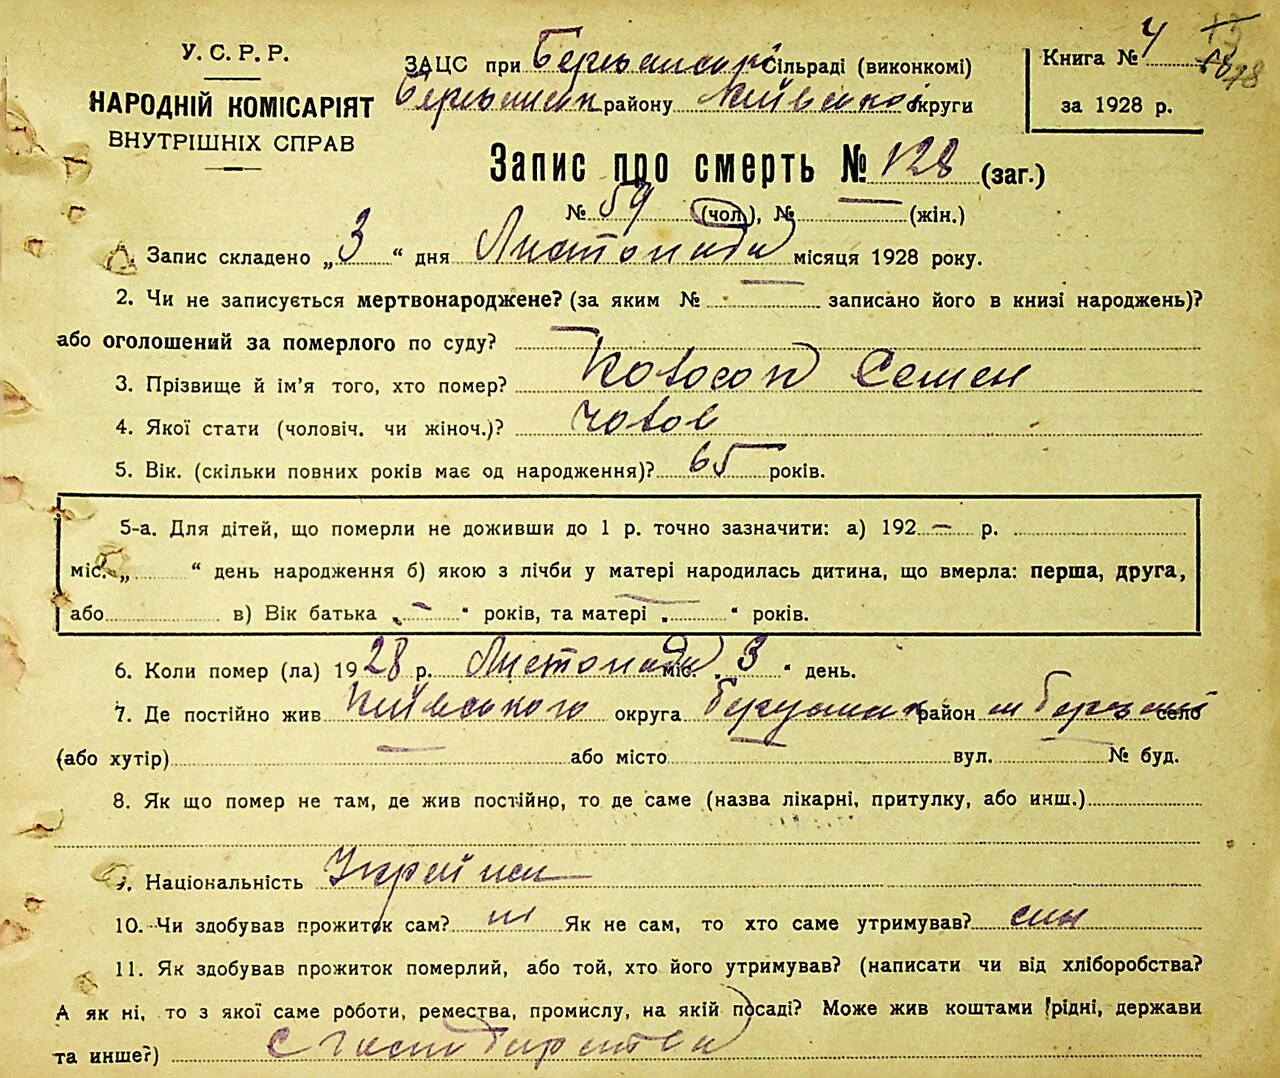 У.С.Р.Р.
НАРОДНІЙ КОМІСАРІЯТ
ВНУТРІШНІХ СПРАВ
ЗАЦС при Сільраді (виконкомі)
району Київської округи
Книга № 4
за 1928 р.
Запис про смерть № 128 (заг.)
№ 59 (чол.), № — (жін.)
Запис складено „3“ дня Листопада місяця 1928 року.
2. Чи не записується мертвонароджене? (за яким № — записано його в книзі народжень)?
або оголошений за померлого по суду? —
3. Прізвище й ім'я того, хто помер? Семен
4. Якої стати (чоловіч. чи жіноч.)? чолов
5. Вік. (скільки повних років має од народження)? 65 років.
5-а. Для дітей, що померли не доживши до 1 р. точно зазначити: а) 192 — р.
міс. „ “ день народження б) якою з лічби у матері народилась дитина, що вмерла: перша, друга,
або в) Вік батька „ — “ років, та матері „ — “ років.
6. Коли помер (ла) 1928 р. Листопада міс. „3“ день.
7. Де постійно жив Київського округа район село
(або хутір) — або місто — вул. — № буд.
8. Як що помер не там, де жив постійно, то де саме (назва лікарні, притулку, або инш.)
9. Національність
10. Чи здобував прожиток сам? ні Як не сам, то хто саме утримував? син
11. Як здобував прожиток померлий, або той, хто його утримував? (написати чи від хліборобства?
А як ні, то з якої саме роботи, ремества, промислу, на якій посаді? Може жив коштами рідні, держави
та инше?)